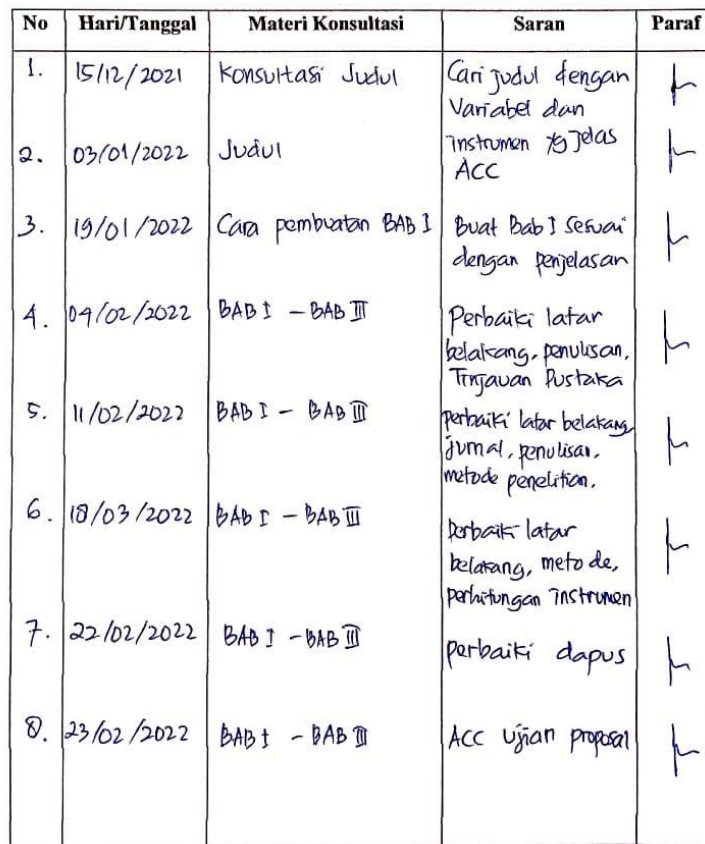 No Hari/Tanggal Materi Konsultasi Saran Paraf
1. 15/12/2021 Konsultasi Judul Cari judul dengan
Variabel dan
instrumen yg jelas
2. 03/01/2022 Judul ACC
3. 19/01/2022 Cara pembuatan BAB I Buat Bab I Sesuai
dengan penjelasan
4. 04/02/2022 BAB I - BAB III Perbaiki latar
belakang, penulisan,
Tinjauan Pustaka
5. 11/02/2022 BAB I - BAB III perbaiki latar belakang,
jurnal, penulisan,
metode penelitian.
6. 18/03/2022 BAB I - BAB III perbaiki latar
belakang, metode,
perhitungan instrumen
7. 22/02/2022 BAB I - BAB III perbaiki dapus
8. 23/02/2022 BAB I - BAB III ACC ujian proposal